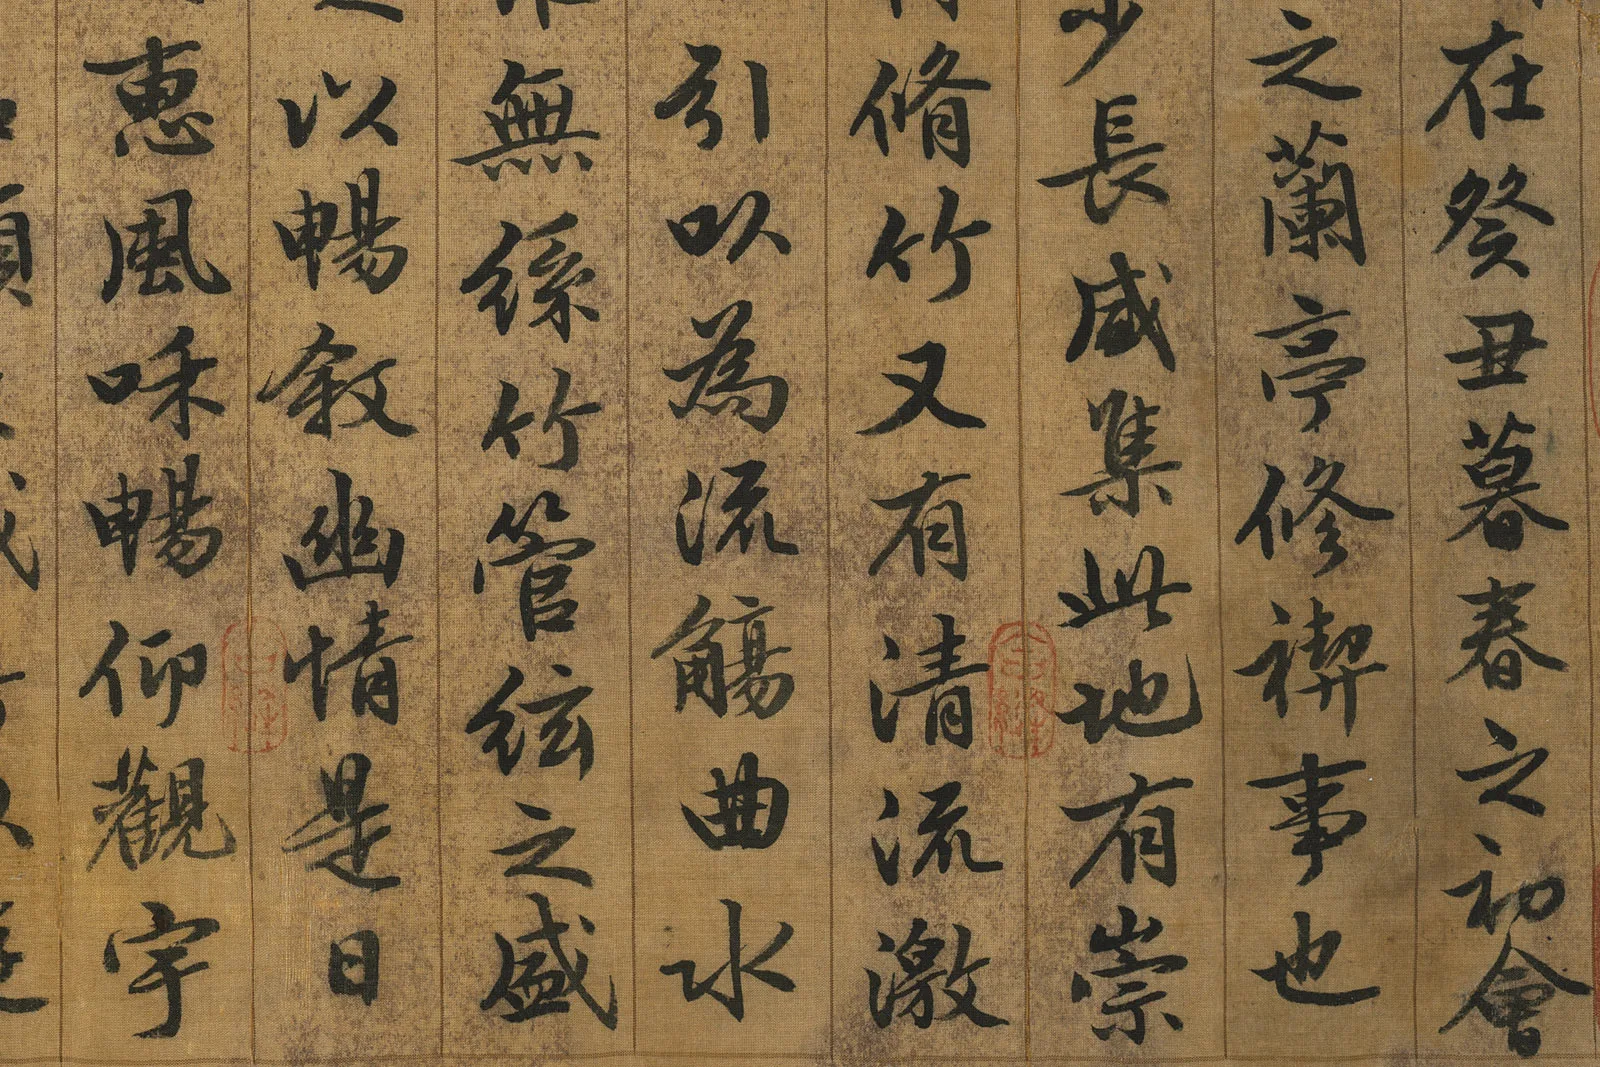 在癸丑暮春之初會
之蘭亭修禊事也
少長咸集此地有崇
脩竹又有清流激
引以為流觴曲水
無絲竹管弦之盛
以暢敘幽情是日
惠風和暢仰觀宇